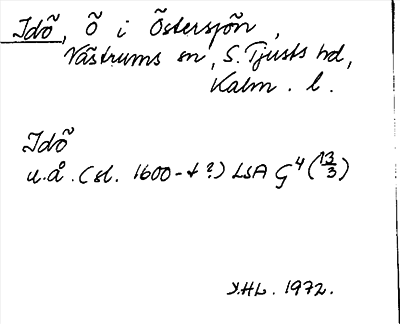 Idö, Ö i Östersjön,
Västrums sn, S. Tjusts hd,
Kalm. l.
Idö
u.å. (sl. 1600-t?) LSA G⁴ (13/3)
Y.HL. 1972.